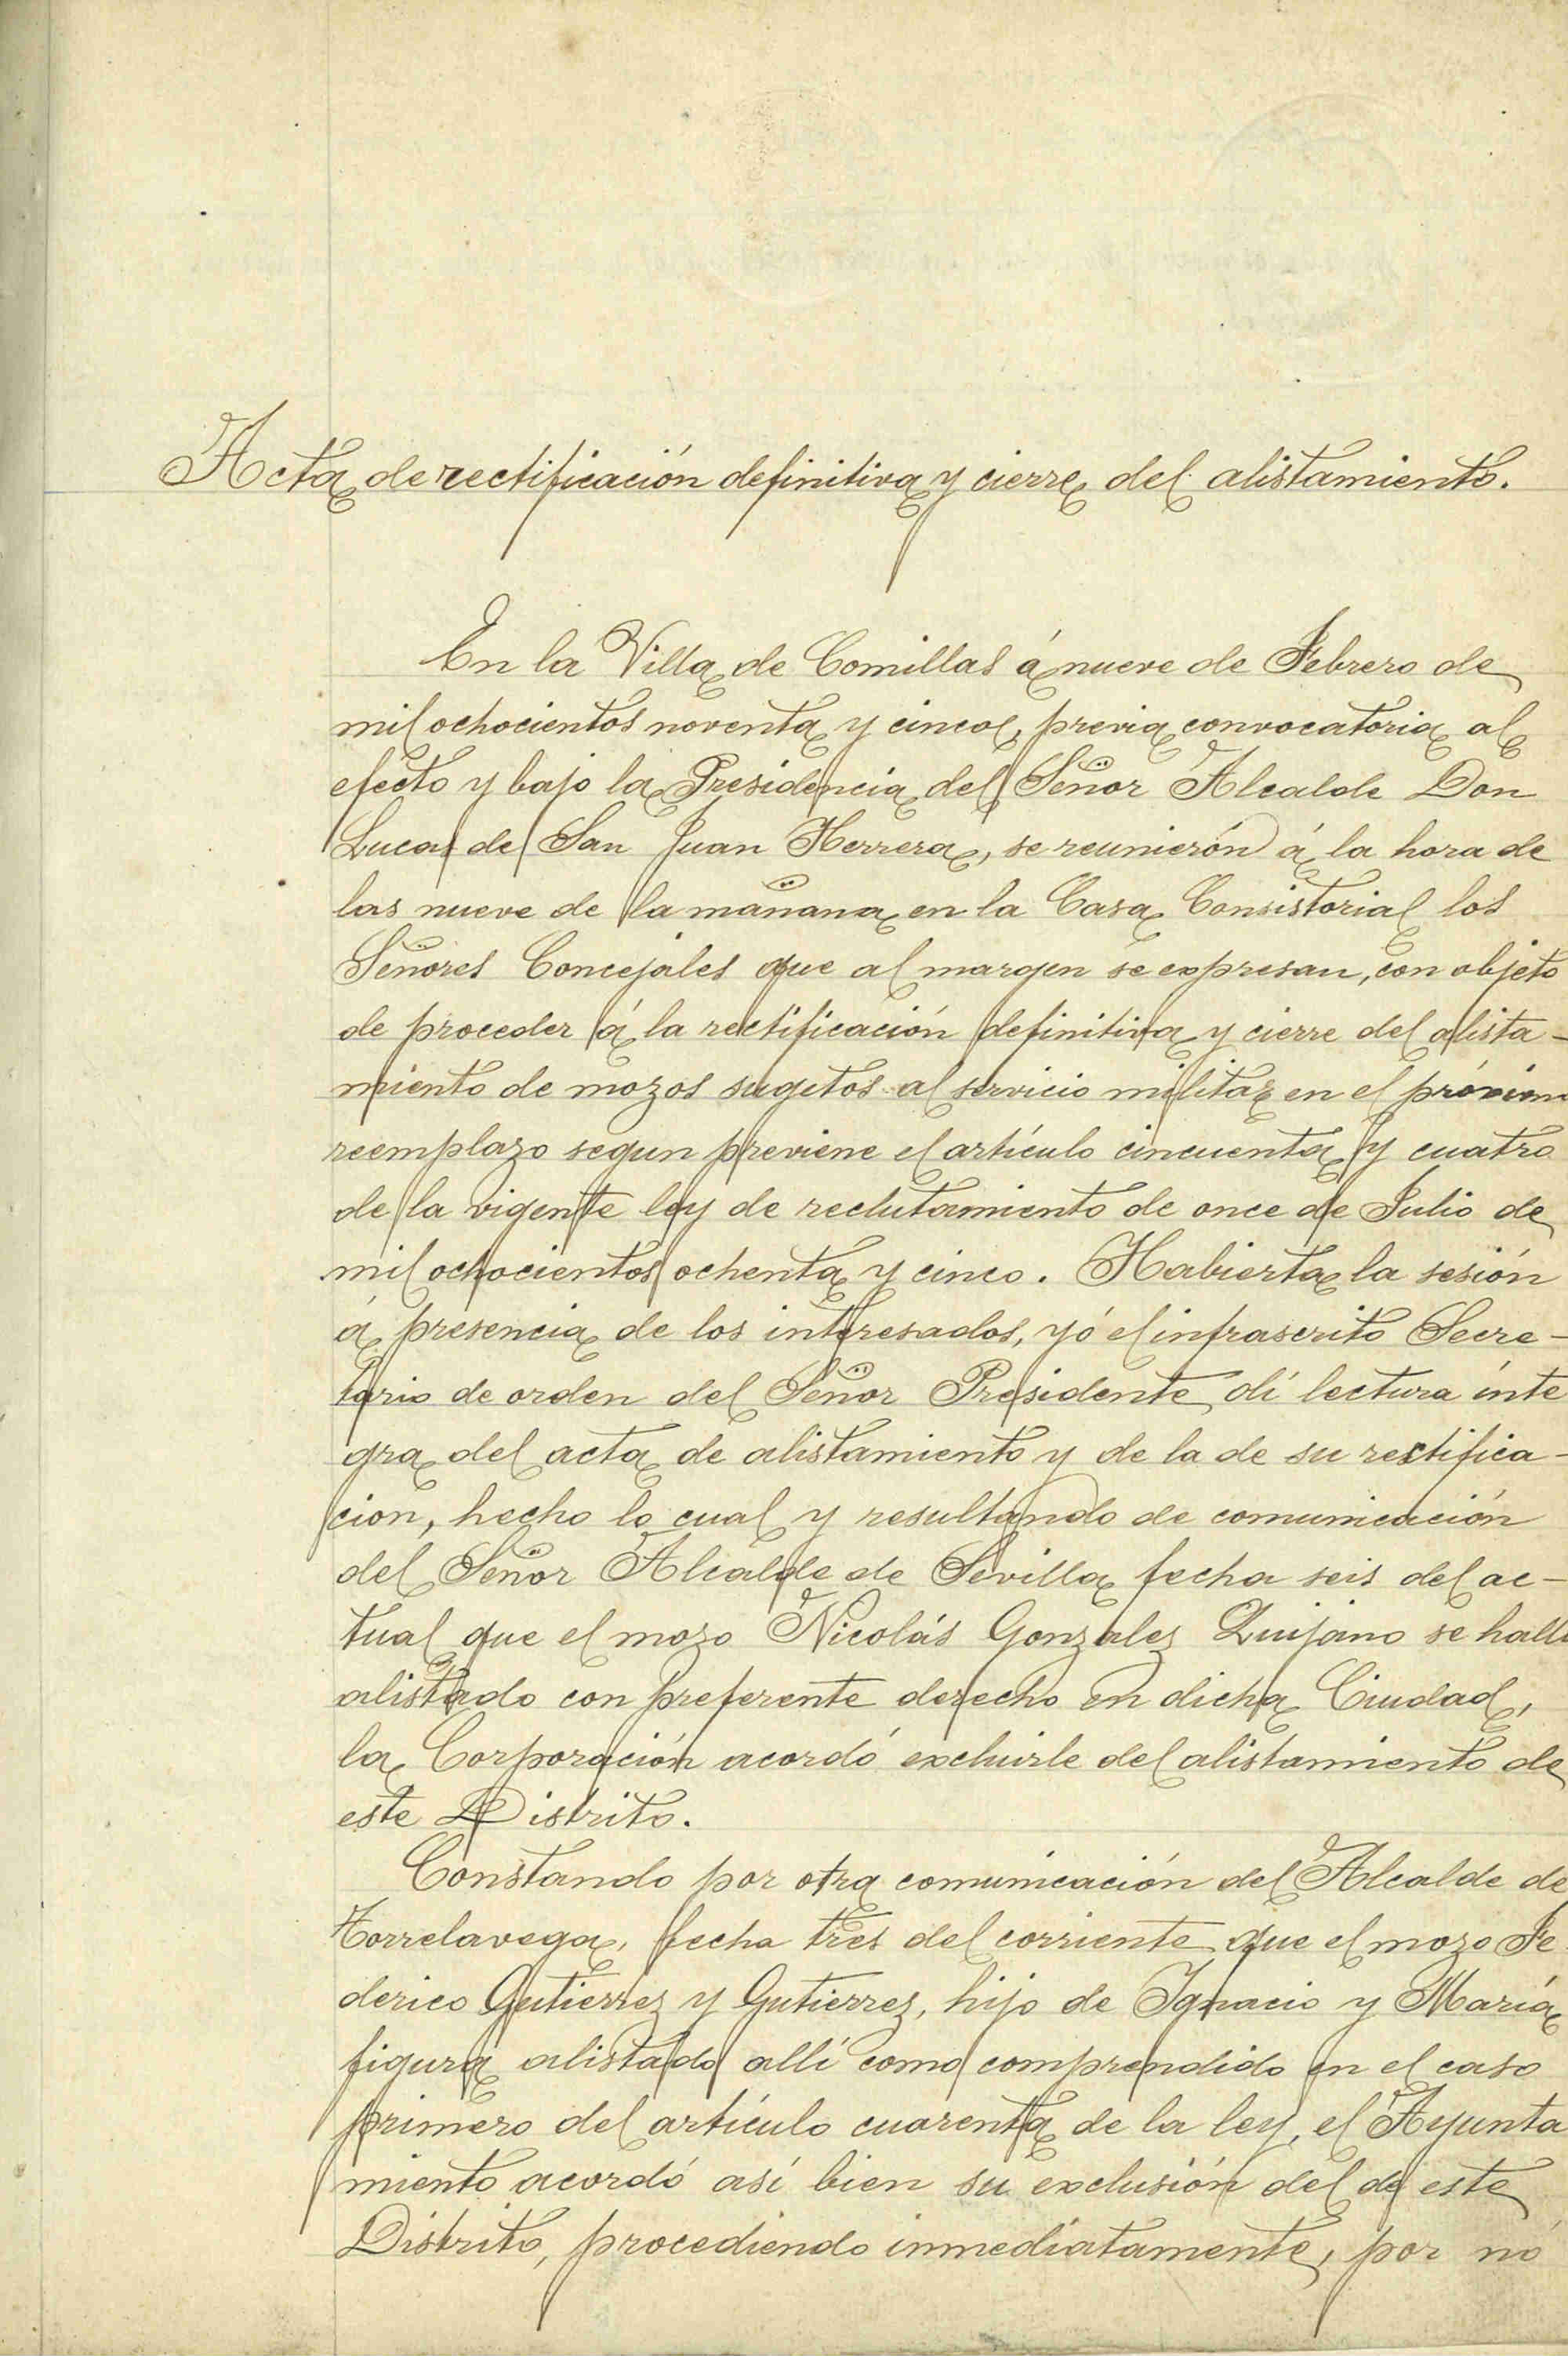 Acta de rectificación definitiva y cierre del alistamiento.
En la Villa de Comillas á nueve de Febrero de
mil ochocientos noventa y cinco, previa convocatoria al
efecto y bajo la Presidencia del Señor Alcalde Don
Lucas de San Juan Herrera, se reunierón á la hora de
las nueve de la mañana en la Casa Consistorial los
Señores Concejales que al margen se expresan, con objeto
de proceder á la rectificación definitiva y cierre del alista-
miento de mozos sugetos al servicio militar en el próximo
reemplazo segun previene el artículo cincuenta y cuatro
de la vigente ley de reclutamiento de once de Julio de
mil ochocientos ochenta y cinco. Habierta la sesión
á presencia de los interesados, yó el infrascrito Secre-
tario de orden del Señor Presidente dí lectura ínte
gra del acta de alistamiento y de la de su rectifica-
cion, hecho lo cual y resultando de comunicación
del Señor Alcalde de Sevilla fecha seis del ac-
tual que el mozo Nicolás Gonzalez Quijano se halla
alistado con preferente derecho en dicha Ciudad,
la Corporación acordó excluirle del alistamiento de
este Distrito.
Constando por otra comunicación del Alcalde de
Torrelavega, fecha tres del corriente que el mozo Fe
derico Gutierrez y Gutierrez, hijo de Ignacio y María
figura alistado allí como comprendido en el caso
primero del artículo cuarenta de la ley, el Ayunta
miento acordó así bien su exclusión del de este
Distrito, procediendo inmediatamente, por no